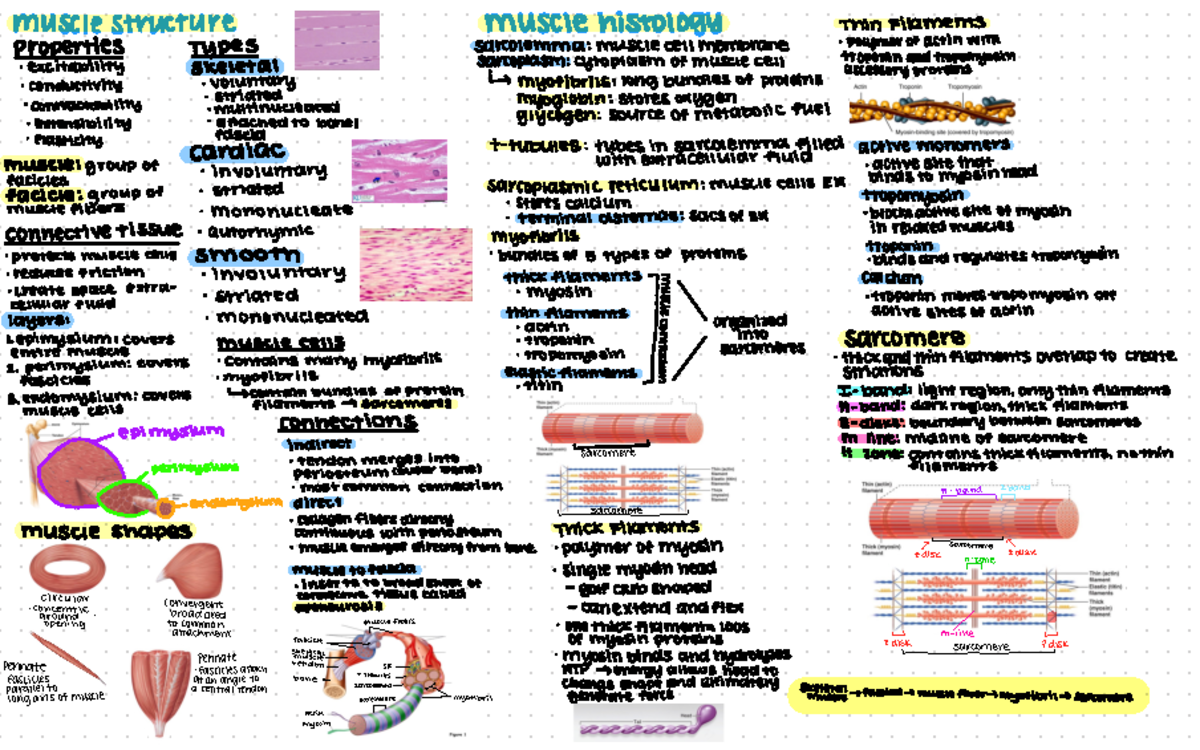 muscle structure
Properties
• excitability
• conductivity
• contractability
• extensibility
• elasticity
muscle: group of
facicles
facicle: group of
muscle fibers
connective tissue
• protects muscle cells
• reduces friction
• create space extra-
cellular fluid
layers:
1. epimysium: covers
entire muscle
2. perimysium: covers
fascicles
3. endomysium: covers
muscle cells
epimysium
perimysium
endomysium
muscle shapes
circular
• concentric
around
opening
convergent
broad ored
to common
attachment
Pennate
fascicles
parallel to
long axis of muscle
Pennate
• fascicles attach
at an angle to
a central tendon
Types
skeletal
• voluntary
• striated
• multinucleated
• attached to bone/
fascia
cardiac
• involuntary
• striated
• mononucleate
• autorhymic
smooth
• involuntary
• striated
• mononucleated
muscle cells
• contains many myofibrils
• myofibrils
↳ contain bundles of protein
filaments → sarcomeres
connections
indirect
• tendon merges into
periosteum (outer bone)
• most common connection
direct
• collagen fibers directly
continuous with periosteum
• muscle emerges directly from bone
muscle to fascia
• inserts to broad sheet of
connective tissue called
aponeurosis
muscle fibers
fascicle
skeletal
muscle
tendon
bone
SR
T tubules
sarcolemma
sarcomere
myofibrils
actin
myosin
Figure 1
muscle histology
sarcolemma: muscle cell membrane
sarcoplasm: cytoplasm of muscle cell
↳ myofibrils: long bundles of proteins
myoglobin: stores oxygen
glycogen: source of metabolic fuel
t-tubules: tubes in sarcolemma filled
with extracellular fluid
sarcoplasmic reticulum: muscle cells ER
• stores calcium
• terminal cisternae: sacs of ER
myofibrils
• bundles of 3 types of proteins
thick filaments
• myosin
thin filaments
• actin
• troponin
• tropomyosin
elastic filaments
• titin
organized
into
sarcomeres
Thin (actin)
filament
Thick (myosin)
filament
sarcomere
Thin (actin)
filament
Elastic (titin)
filament
Thick
(myosin)
filament
sarcomere
Thick Filaments
• polymer of myosin
• single myosin head
- golf club shaped
- can extend and flex
• thick filament: 100s
of myosin proteins
• myosin binds and hydrolyzes
ATP → energy allows head to
change shape and ultimately
generate force
Tail
Head
Thin Filaments
• polymer of actin with
troponin and tropomyosin
accessory proteins
Actin
Troponin
Tropomyosin
Myosin-binding site (covered by tropomyosin)
active monomers
• active site that
binds to myosin head
tropomyosin
• blocks active site of myosin
in relaxed muscles
troponin
• binds and regulates tropomyosin
calcium
• troponin moves tropomyosin off
active sites of actin
Sarcomere
• thick and thin filaments overlap to create
striations
I-band: light region, only thin filaments
A-band: dark region, thick filaments
Z-disk: boundary between sarcomeres
m line: midline of sarcomere
H zone: contains thick filaments, no thin
filaments
Thin (actin)
filament
A-band
I band
Thick (myosin)
filament
z disk
sarcomere
z disk
H-zone
Thin (actin)
filament
Elastic (titin)
filament
Thick
(myosin)
filament
m-line
z disk
z disk
sarcomere
skeletal
muscle → fascicle → muscle fiber → myofibril → sarcomere